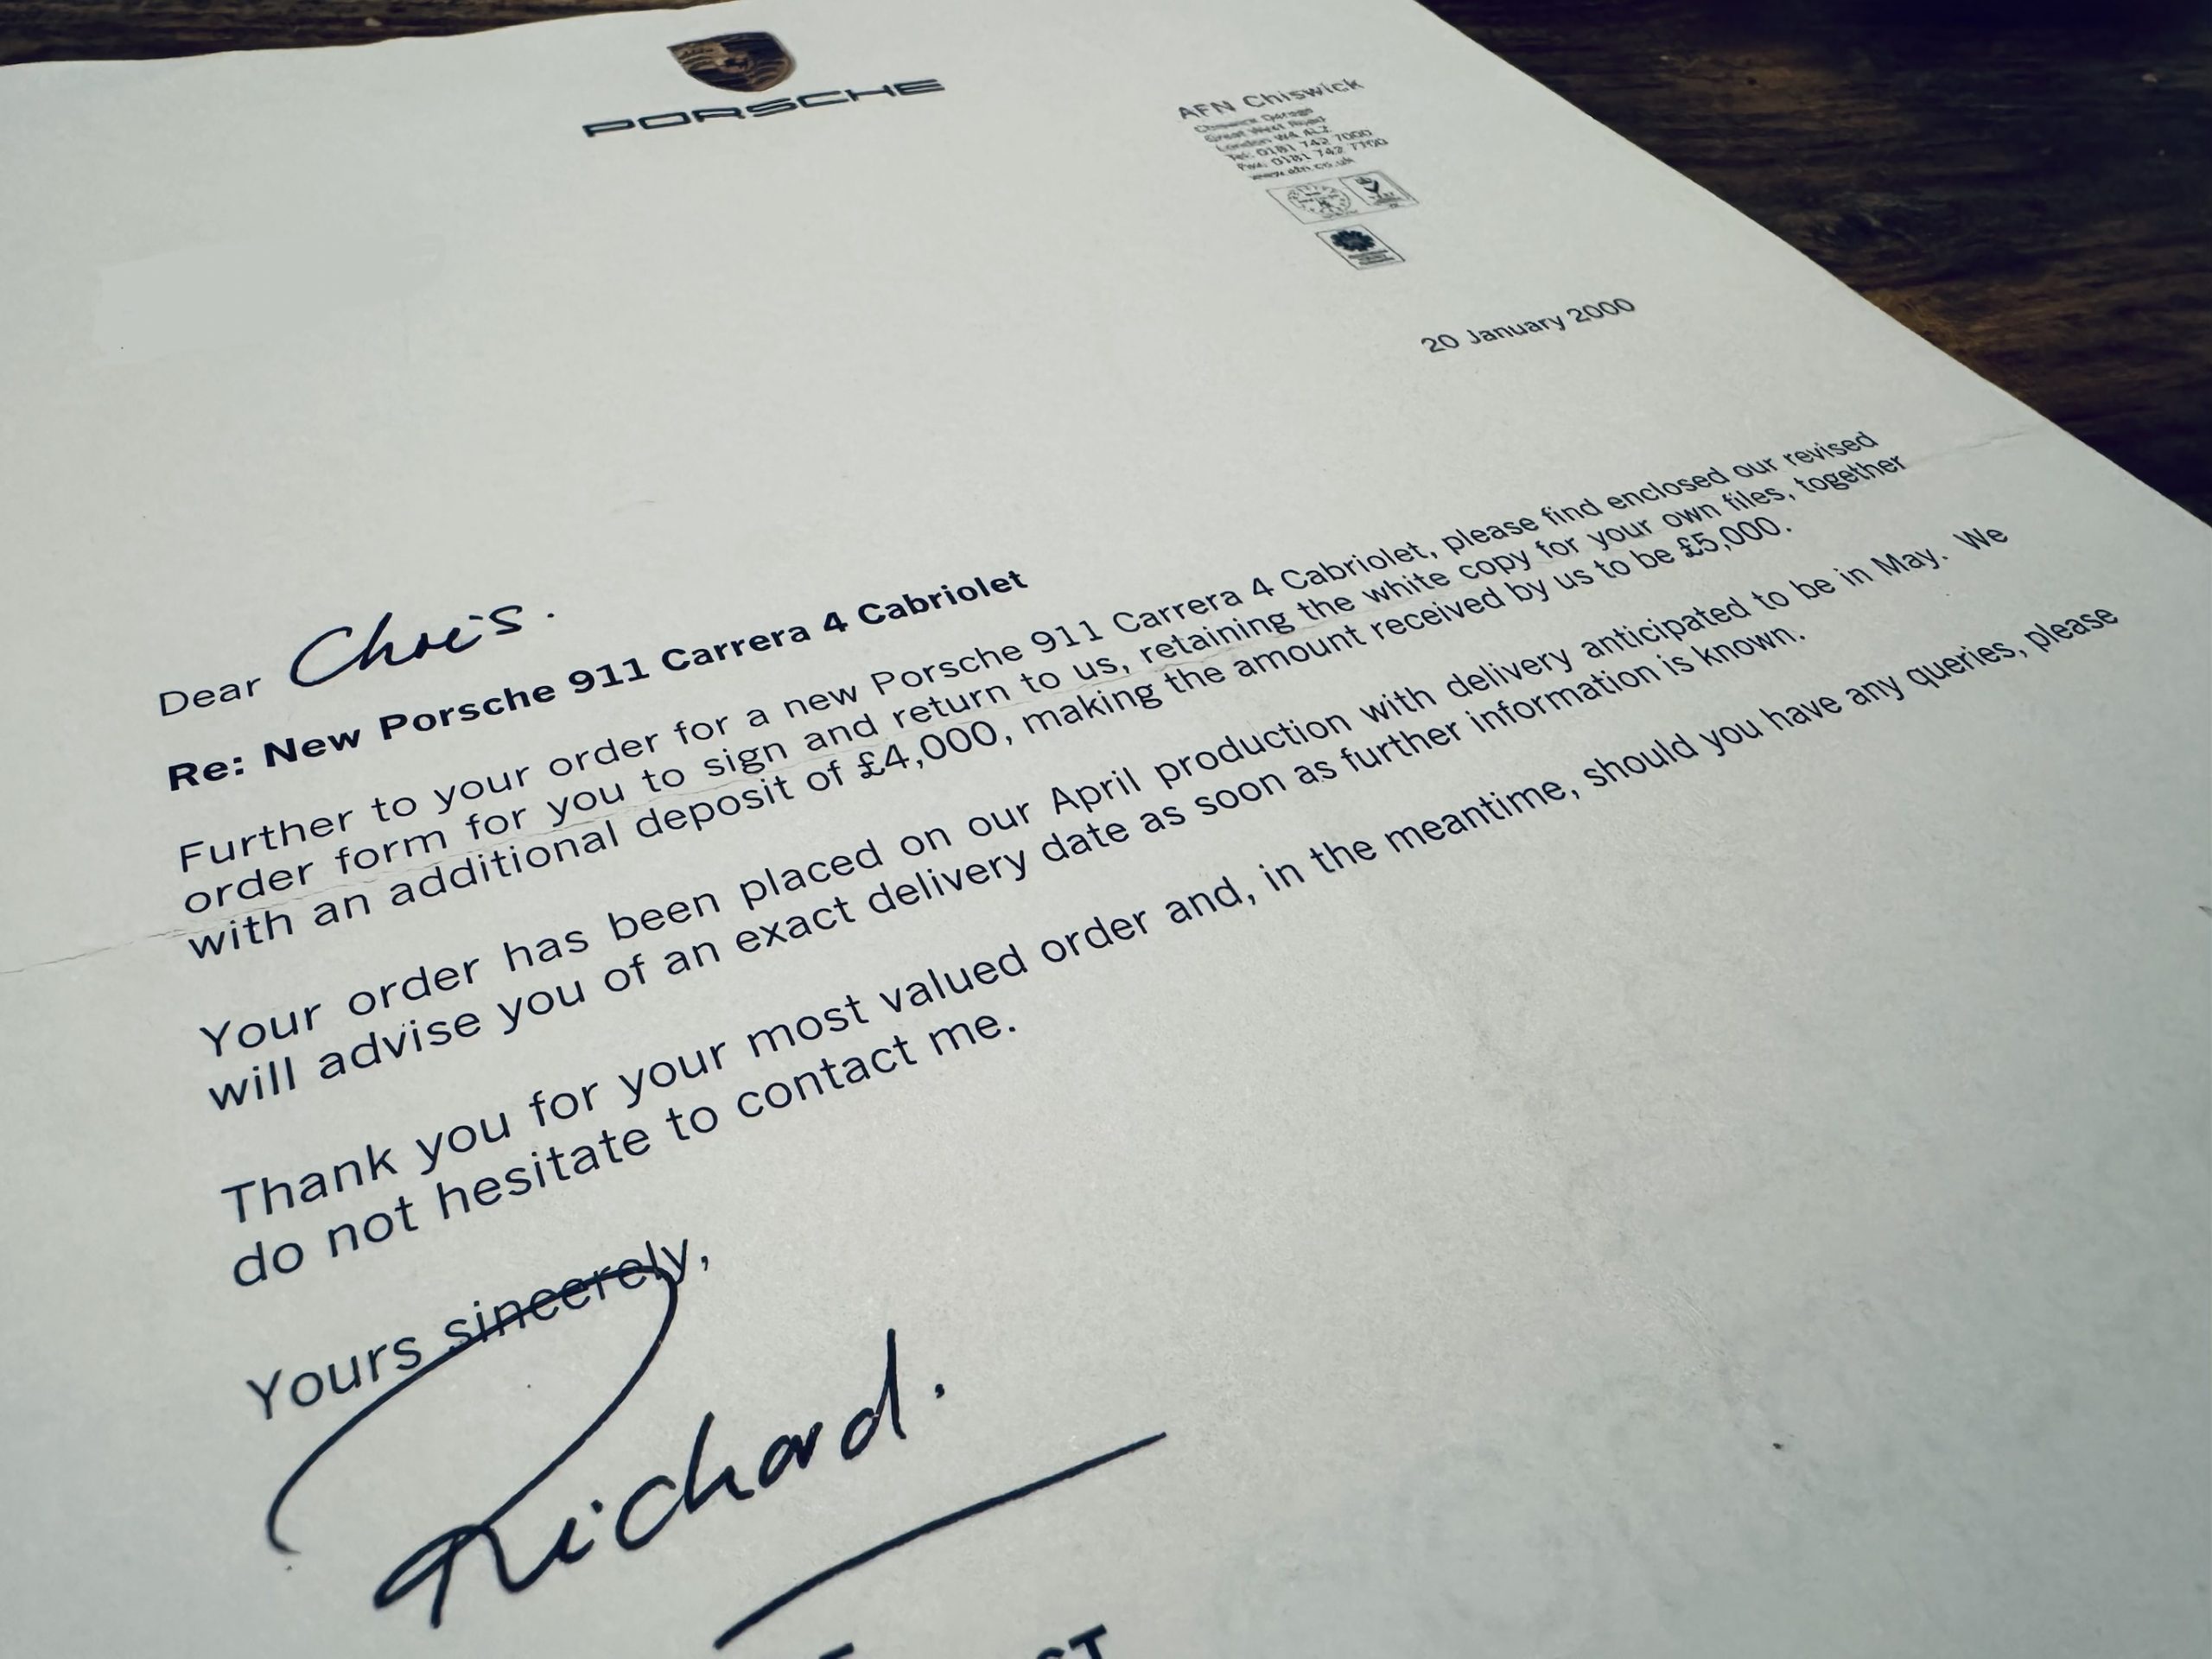 PORSCHE
AFN Chiswick
Chiswick Garage
Great West Road
London W4
Tel: 0181 742 7000
Fax: 0181 742 7700
www.afn.co.uk
20 January 2000
Dear Chris.
Re: New Porsche 911 Carrera 4 Cabriolet
Further to your order for a new Porsche 911 Carrera 4 Cabriolet, please find enclosed our revised
order form for you to sign and return to us, retaining the white copy for your own files, together
with an additional deposit of £4,000, making the amount received by us to be £5,000.
Your order has been placed on our April production with delivery anticipated to be in May. We
will advise you of an exact delivery date as soon as further information is known.
Thank you for your most valued order and, in the meantime, should you have any queries, please
do not hesitate to contact me.
Yours sincerely,
Richard.